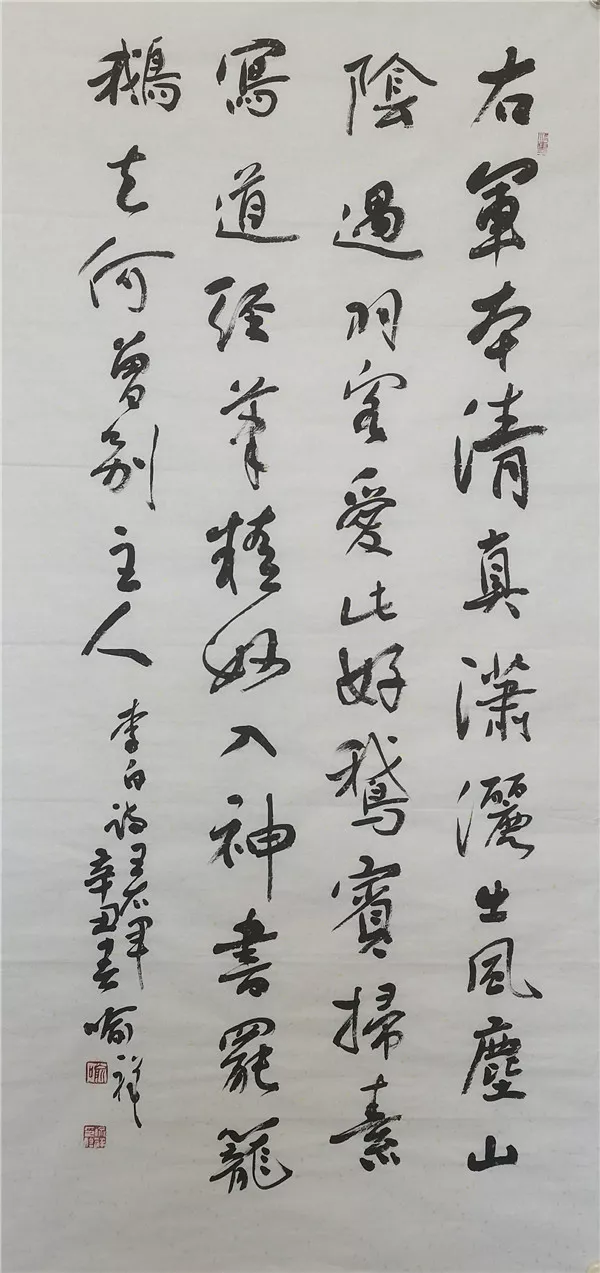 右軍本清真瀟灑出風塵山
陰遇羽客愛此好鵝賓掃素
寫道經筆精妙入神書罷籠
鵝去何曾別主人
李白詩王右軍
辛丑春喻祥